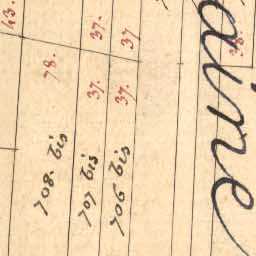 43.
708. bis 78.
707 bis 37. 37.
706 bis 37. 37
aine